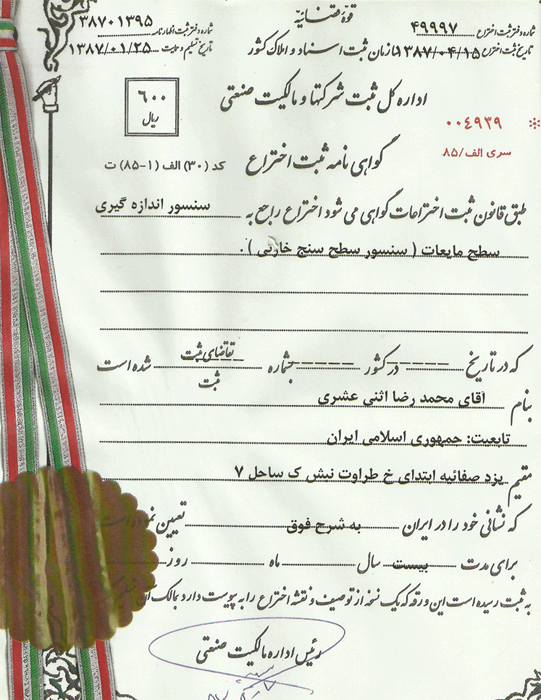 قوهٔ قضائیه
شماره دفتر ثبت اختراع ۴۹۹۹۷
شماره دفتر ثبت اظهارنامه ۳۸۷۰۱۳۹۵
تاریخ ثبت اختراع ۱۳۸۷/۰۴/۱۵
سازمان ثبت اسناد و املاک کشور
تاریخ تسلیم ۱۳۸۷/۰۱/۲۵
اداره کل ثبت شرکتها و مالکیت صنعتی
۶۰۰
ریال
۰۰۴۹۳۹ *
سری الف/۸۵
گواهی نامه ثبت اختراع
کد (۳۰) الف (۱-۸۵) ت
طبق قانون ثبت اختراعات گواهی می شود اختراع راجع به سنسور اندازه گیری
سطح مایعات ( سنسور سطح سنج خازنی ) .
که در تاریخ ----- در کشور ----- بشماره ----- تقاضای ثبت شده است
ثبت
بنام آقای محمد رضا اثنی عشری
تابعیت: جمهوری اسلامی ایران
مقیم یزد صفائیه ابتدای خ طراوت نبش ک ساحل ۷
که نشانی خود را در ایران به شرح فوق تعیین نموده است
برای مدت بیست سال ماه روز
به ثبت رسیده است این ورقه که یک نسخه از توصیف و نقشه اختراع را به پیوست دارد بمالک
رئیس اداره مالکیت صنعتی